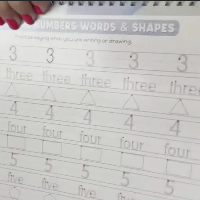 NUMBERS WORDS & SHAPES
3 3 3 3 3
three three three three three
4 4 4 4 4
four four four four four
5 5 5 5 5
five five five five five